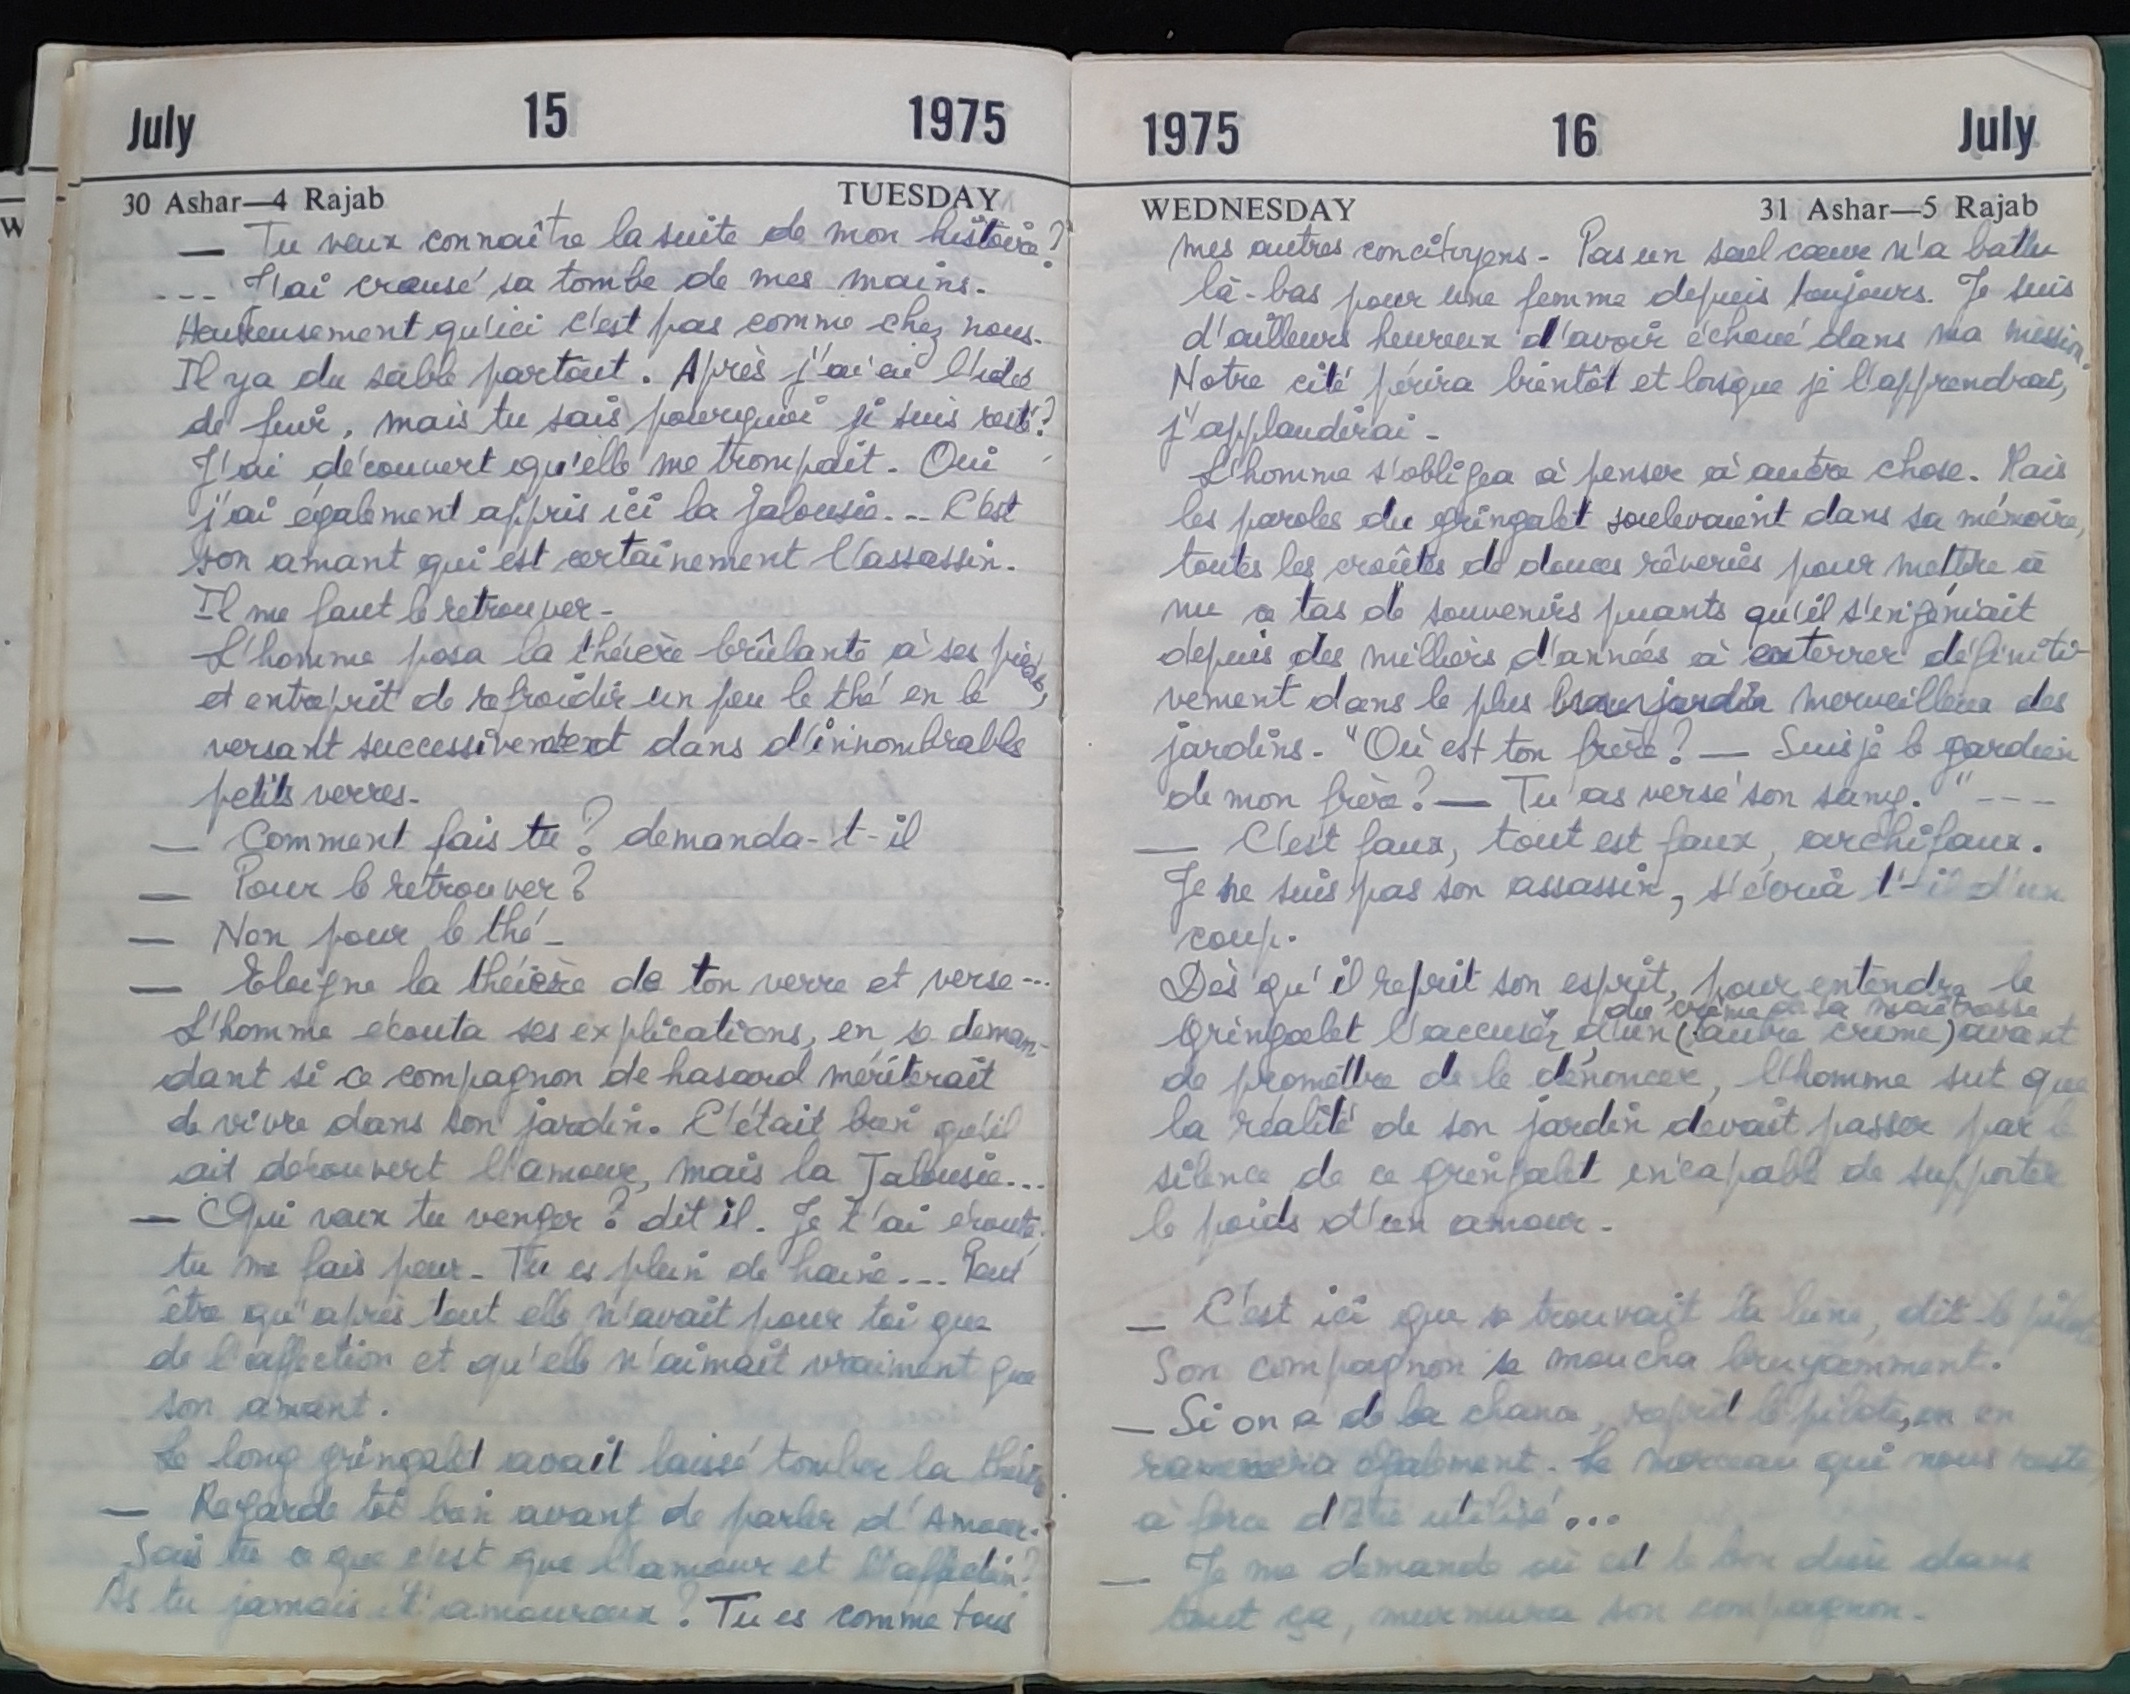 July 15 1975
30 Ashar—4 Rajab TUESDAY
— Tu veux connaître la suite de mon histoire?
... J'ai creusé sa tombe de mes mains.
Heureusement qu'ici c'est pas comme chez nous.
Il ya du sable partout. Après j'ai eu l'idée
de fuir, mais tu sais pourquoi je suis resté?
J'ai découvert qu'elle me trompait. Oui
j'ai également appris ici la jalousie... C'est
son amant qui est certainement l'assassin.
Il me faut le retrouver.
L'homme posa la théière brûlante à ses pieds,
et entreprit de refroidir un peu le thé en le
versant successivement dans d'innombrables
petits verres.
— Comment fais tu? demanda-t-il
— Pour le retrouver?
— Non pour le thé.
— Eloigne la théière de ton verre et verse...
L'homme écouta ses explications, en se deman-
dant si ce compagnon de hasard mériterait
de vivre dans son jardin. C'était bien qu'il
ait découvert l'amour, mais la Jalousie...
— Qui veux tu venger? dit il. Je t'ai écouté,
tu me fais peur. Tu es plein de haine... Peut
être qu'après tout elle n'avait pour toi que
de l'affection et qu'elle n'aimait vraiment que
son amant.
Le long gringalet avait laissé tomber la théière
— Regarde toi bien avant de parler d'Amour.
Sais tu ce que c'est que l'amour et l'affection?
As tu jamais été amoureux? Tu es comme tous
1975 16 July
WEDNESDAY 31 Ashar—5 Rajab
mes autres concitoyens. Pas un seul cœur n'a battu
là-bas pour une femme depuis toujours. Je suis
d'ailleurs heureux d'avoir échoué dans ma mission.
Notre cité périra bientôt et lorsque je l'apprendrai,
j'applaudirai.
L'homme s'obligea à penser à autre chose. Mais
les paroles du gringalet soulevaient dans sa mémoire,
toutes les croûtes de douces rêveries pour mettre à
nu ce tas de souvenirs puants qu'il s'ingéniait
depuis des milliers d'années à enterrer définiti-
vement dans le plus merveilleux des
jardins. "Où est ton frère? — Suis je le gardien
de mon frère? — Tu as versé son sang." ----
— C'est faux, tout est faux, archifaux.
Je ne suis pas son assassin, s'écria t-il d'un
coup.
Dès qu'il reprit son esprit, pour entendre le
du crime de sa maîtresse
gringalet l'accuser d'un (autre crime) avant
de promettre de le dénoncer, l'homme sut que
la réalité de son jardin devait passer par le
silence de ce gringalet incapable de supporter
le poids d'un amour.
— C'est ici que se trouvait la lune, dit le pilote
Son compagnon se moucha bruyamment.
— Si on a de la chance, reprit le pilote, on en
ramènera également. Le morceau qui nous reste,
à force d'être utilisé...
— Je me demande où est le bon dieu dans
tout ça, murmura son compagnon.